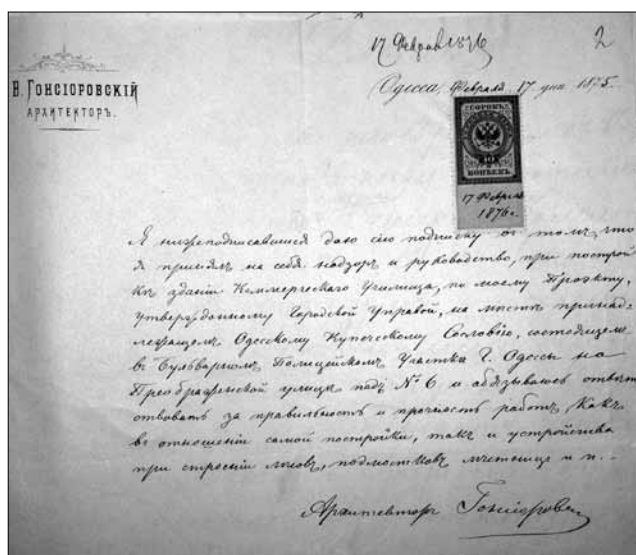 17 Февраля 1876
2
В. Гонсіоровскій
Архитекторъ.
Одесса, Февраля 17 дня 1875.
сорокъ
40
копѣекъ
17 Февраля
1876 г.
Я нижеподписавшійся даю сію подписку въ томъ, что
я принялъ на себя надзоръ и руководство, при построй
кѣ зданія Коммерческаго Училища, по моему Проэкту,
утвержденному Городской Управой, на мѣстѣ принад-
лежащемъ Одесскому Купеческому Сословію, состоящемъ
въ Бульварномъ Полицейскомъ Участкѣ Г. Одессы на
Преображенской улицѣ подъ № 6 и обязываюсь отвѣт
ствовать за правильность и прочность работъ, какъ
въ отношеніи самой постройки, такъ и устройства
при строеніи лѣсовъ, подмостковъ лѣстницъ и п. –
Архитекторъ Гонсіоровскій